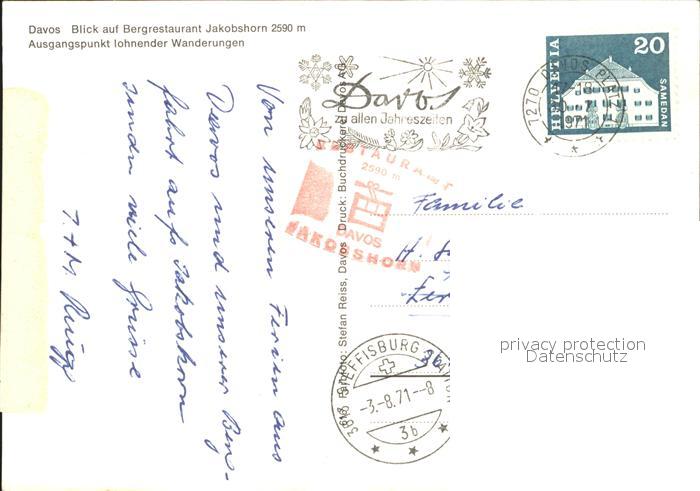 Davos Blick auf Bergrestaurant Jakobshorn 2590 m
Ausgangspunkt lohnender Wanderungen
Von unseren Ferien aus
Davos und unserer Berg-
fahrt aufs Jakobshorn
senden viele Grüsse
Familie
H.
Davos
zu allen Jahreszeiten
HELVETIA
20
SAMEDAN
1270 DAVOS PLATZ
1971
RESTAURANT
2590 m
DAVOS
JAKOBSHORN
Farbfoto: Stefan Reiss, Davos Druck: Buchdruckerei Davos AG
STEFFISBURG STATION
-3.-8.71--8
3b
3b
privacy protection
Datenschutz